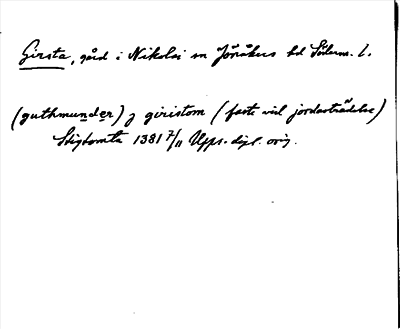 Girsta, gård i Nikolai sn Jönåkers hd Söderm. l.
(guthmunder) j giristom (faste vid jordaträdbte)
Stigtomta 1381 7/11 Upps. dipl. orig.